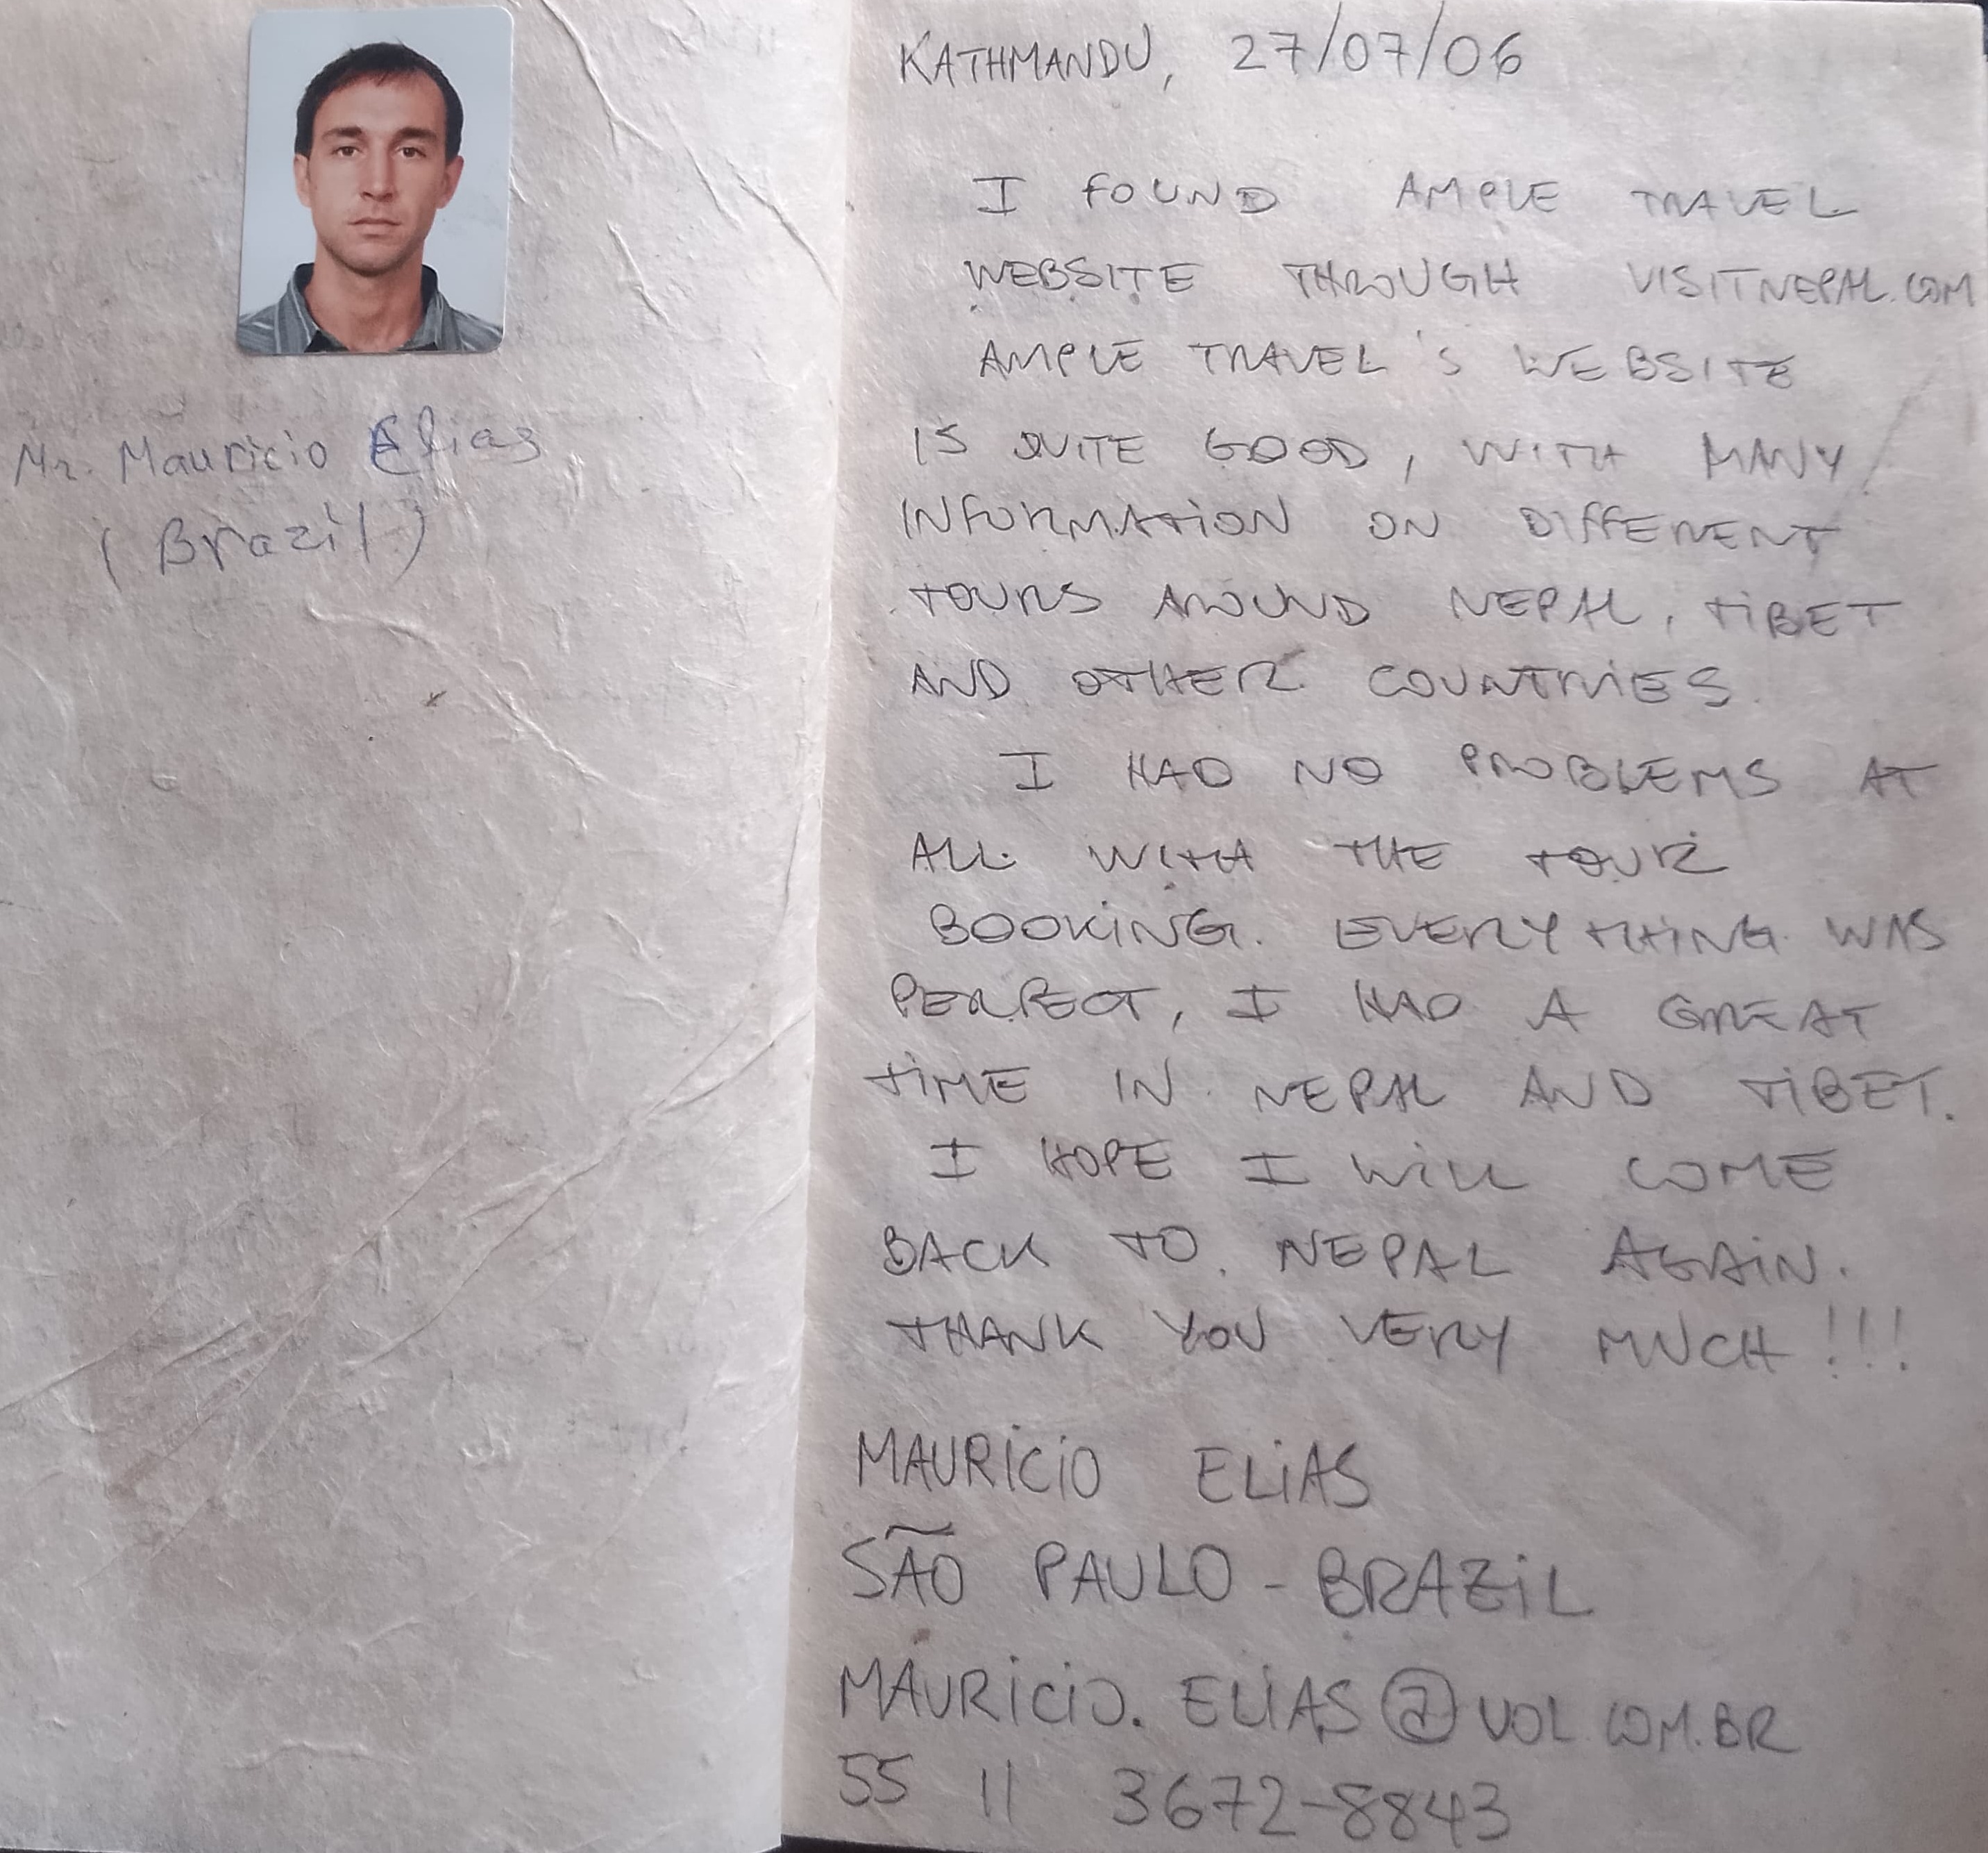 Mr. Mauricio Elias
(Brazil)
KATHMANDU, 27/07/06
I FOUND AMPLE TRAVEL
WEBSITE THROUGH VISITNEPAL.COM
AMPLE TRAVEL'S WEBSITE
IS QUITE GOOD, WITH MANY
INFORMATION ON DIFFERENT
TOURS AROUND NEPAL, TIBET
AND OTHER COUNTRIES.
I HAD NO PROBLEMS AT
ALL WITH THE TOUR
BOOKING. EVERYTHING WAS
PERFECT, I HAD A GREAT
TIME IN NEPAL AND TIBET.
I HOPE I WILL COME
BACK TO NEPAL AGAIN.
THANK YOU VERY MUCH!!!
MAURICIO ELIAS
SÃO PAULO - BRAZIL
MAURICIO.ELIAS@UOL.COM.BR
55 11 3672-8843